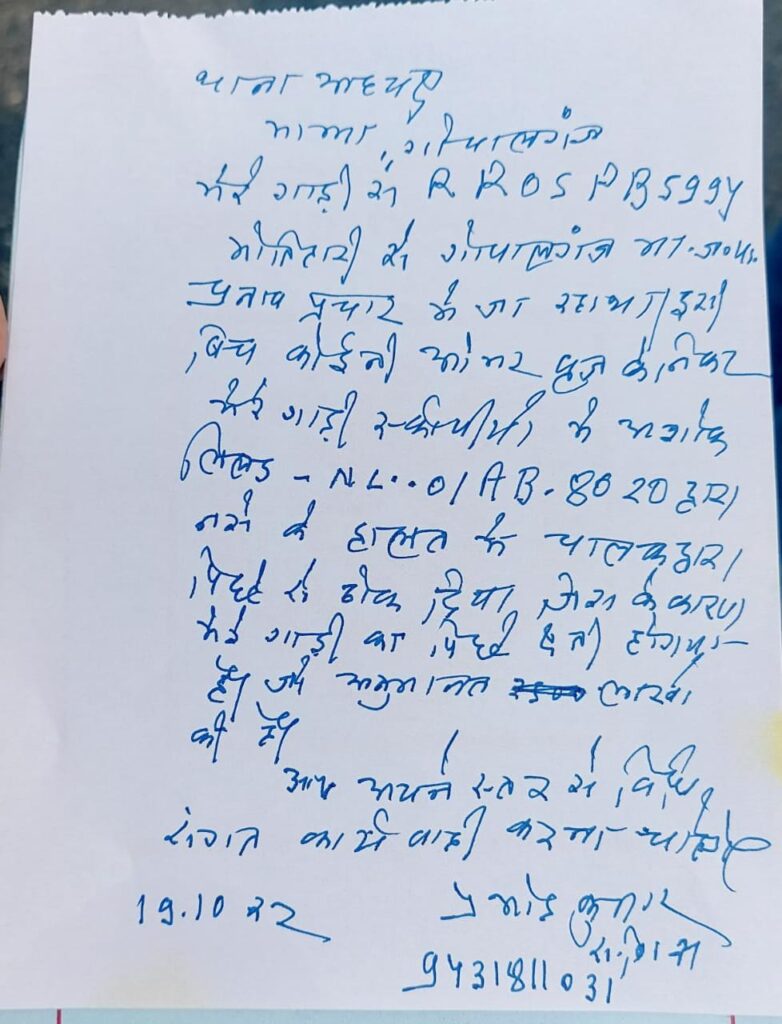 थाना अध्यक्ष
गोपालगंज
मेरे गाड़ी सं BR05PB5994
मोतिहारी से गोपालगंज भा.ज.पा.
प्रचार में जा रहा था। इसी
बिच कोईनी ओभर ब्रुज के निकट
मेरे गाड़ी स्कॉर्पीयो में
NL..01AB.8020 द्वारा
नशे के हालत में चालक द्वारा
पिछे से ठोक दिया जिस के कारण
मेरे गाड़ी का पिछे क्षती होगया
है। जो अनुमानित लाखों
की है।
आप अपने स्तर से विधि
संगत कार्यवाही करना चाहेंगे
19.10 22
प्रमोद कुमार
9431811031